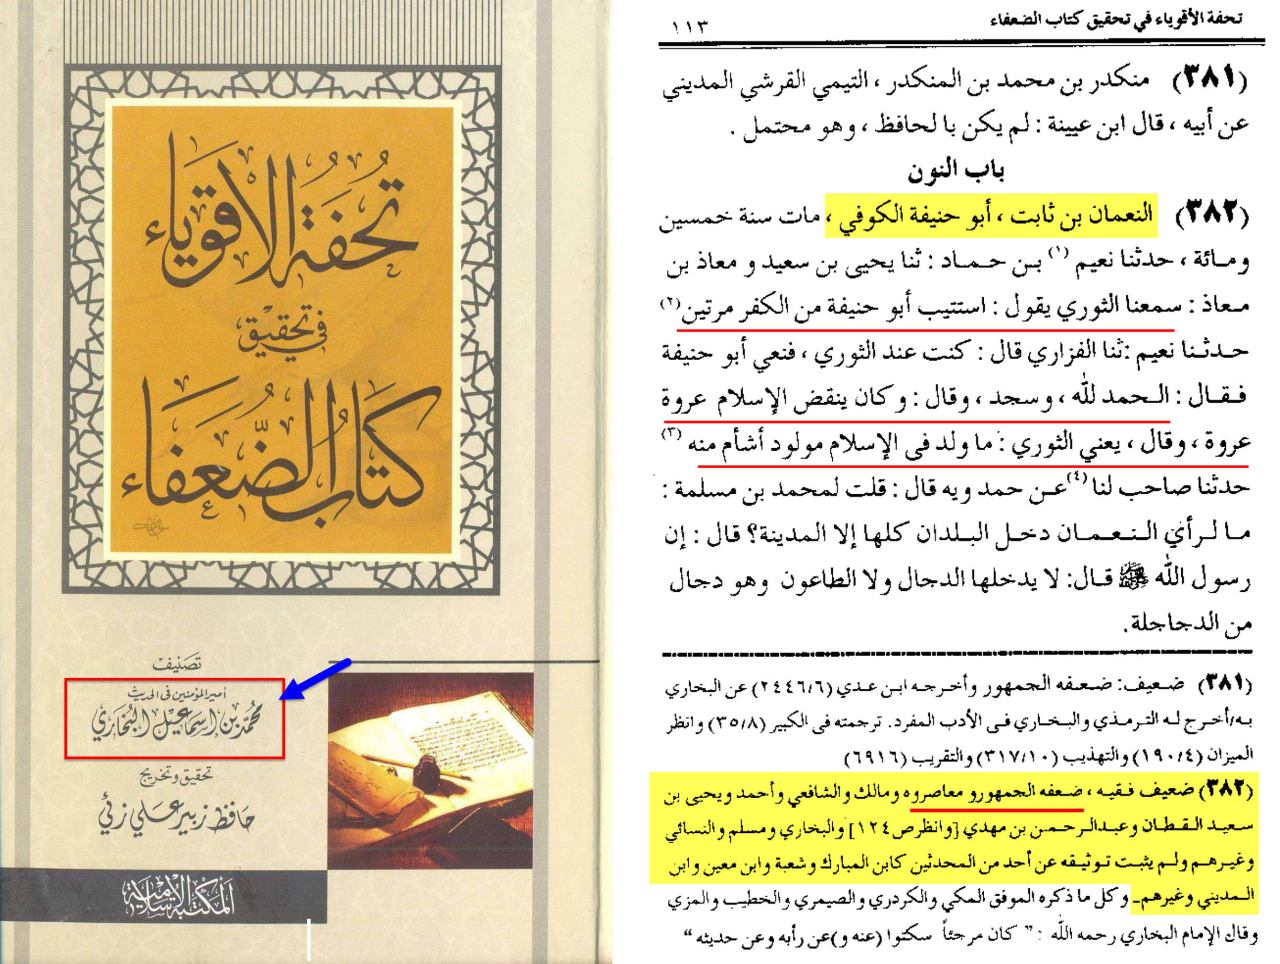 تحفة الأقوياء
في تحقيق
كتاب الضعفاء
تصنيف
أمير المؤمنين في الحديث
محمد بن اسماعيل البخاري
تحقيق وتخريج
حافظ زبير علي زئي
المكتبة الإسلامية
تحفة الأقوياء في تحقيق كتاب الضعفاء
١١٣
(٣٨١) منكدر بن محمد بن المنكدر ، التيمي القرشي المديني
عن أبيه ، قال ابن عيينة : لم يكن با لحافظ ، وهو محتمل .
باب النون
(٣٨٢) النعمان بن ثابت ، أبو حنيفة الكوفي ، مات سنة خمسين
ومائة ، حدثنا نعيم (١) بن حماد : ثنا يحيى بن سعيد و معاذ بن
معاذ : سمعنا الثوري يقول : استتيب أبو حنيفة من الكفر مرتين (٢)
حدثنا نعيم :ثنا الفزاري قال : كنت عند الثوري ، فنعي أبو حنيفة
فقال : الحمد لله ، وسجد ، وقال : وكان ينقض الإسلام عروة
عروة ، وقال ، يعني الثوري : ما ولد فى الإسلام مولود أشأم منه (٣)
حدثنا صاحب لنا (٤) عن حمد ويه قال : قلت لمحمد بن مسلمة :
ما لرأي النعمان دخل البلدان كلها إلا المدينة؟ قال : إن
رسول الله ﷺ قال: لا يدخلها الدجال ولا الطاعون وهو دجال
من الدجاجلة.
(٣٨١) ضعيف: ضعفه الجمهور وأخرجه ابن عدي (٢٤٤٦/٦) عن البخاري
به/أخرج له الترمذي والبخاري فى الأدب المفرد. ترجمته فى الكبير (٣٥/٨) وانظر
الميزان (١٩٠/٤) والتهذيب (٣١٧/١٠) والتقريب (٦٩١٦)
(٣٨٢) ضعيف فقيه ، ضعفه الجمهورو معاصروه ومالك والشافعي وأحمد ويحيى بن
سعيد القطان وعبدالرحمن بن مهدي [وانظر ص ١٢٤] والبخاري ومسلم والنسائي
وغيرهم ولم يثبت توثيقه عن أحد من المحدثين كابن المبارك وشعبة وابن معين وابن
المديني وغيرهم_ وكل ما ذكره الموفق المكي والكردري والصيمري والخطيب والمزي
وقال الإمام البخاري رحمه الله : " كان مرجئاً سكتوا (عنه و)عن رأيه وعن حديثه "